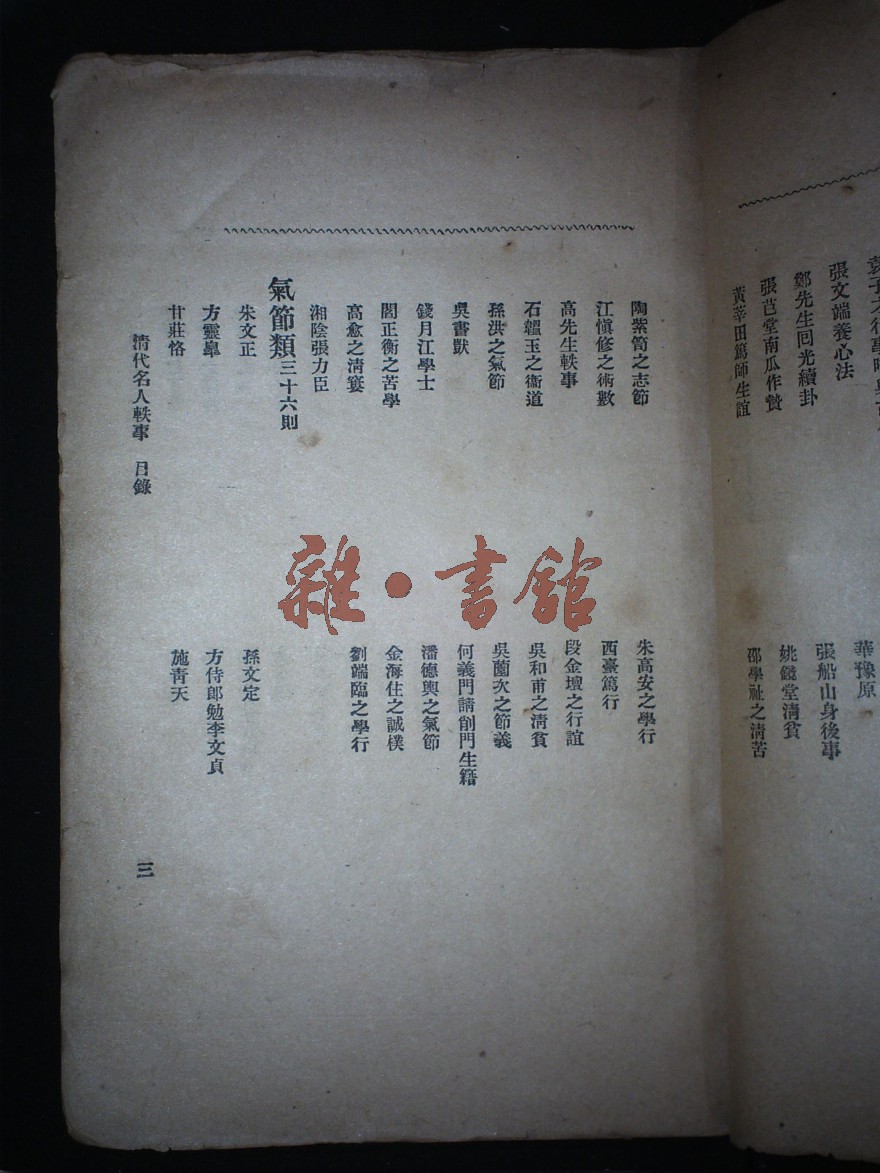 袁子才行事略與
華豫原
張文端養心法
張船山身後事
鄭先生回光續卦
姚鏡堂清貧
張芑堂南瓜作贄
邵學祉之清苦
黃莘田篤師生誼
陶紫笥之志節
朱高安之學行
江愼修之術數
西臺篤行
高先生軼事
段金壇之行誼
石韞玉之衞道
吳和甫之清貧
孫洪之氣節
吳薗次之節義
吳書獃
何義門請削門生籍
錢月江學士
潘德輿之氣節
閻正衡之苦學
金海住之誠樸
高愈之清窶
劉端臨之學行
湘陰張力臣
氣節類三十六則
朱文正
孫文定
方靈臯
方侍郎勉李文貞
甘莊恪
施青天
清代名人軼事 目錄
三
雜·書館